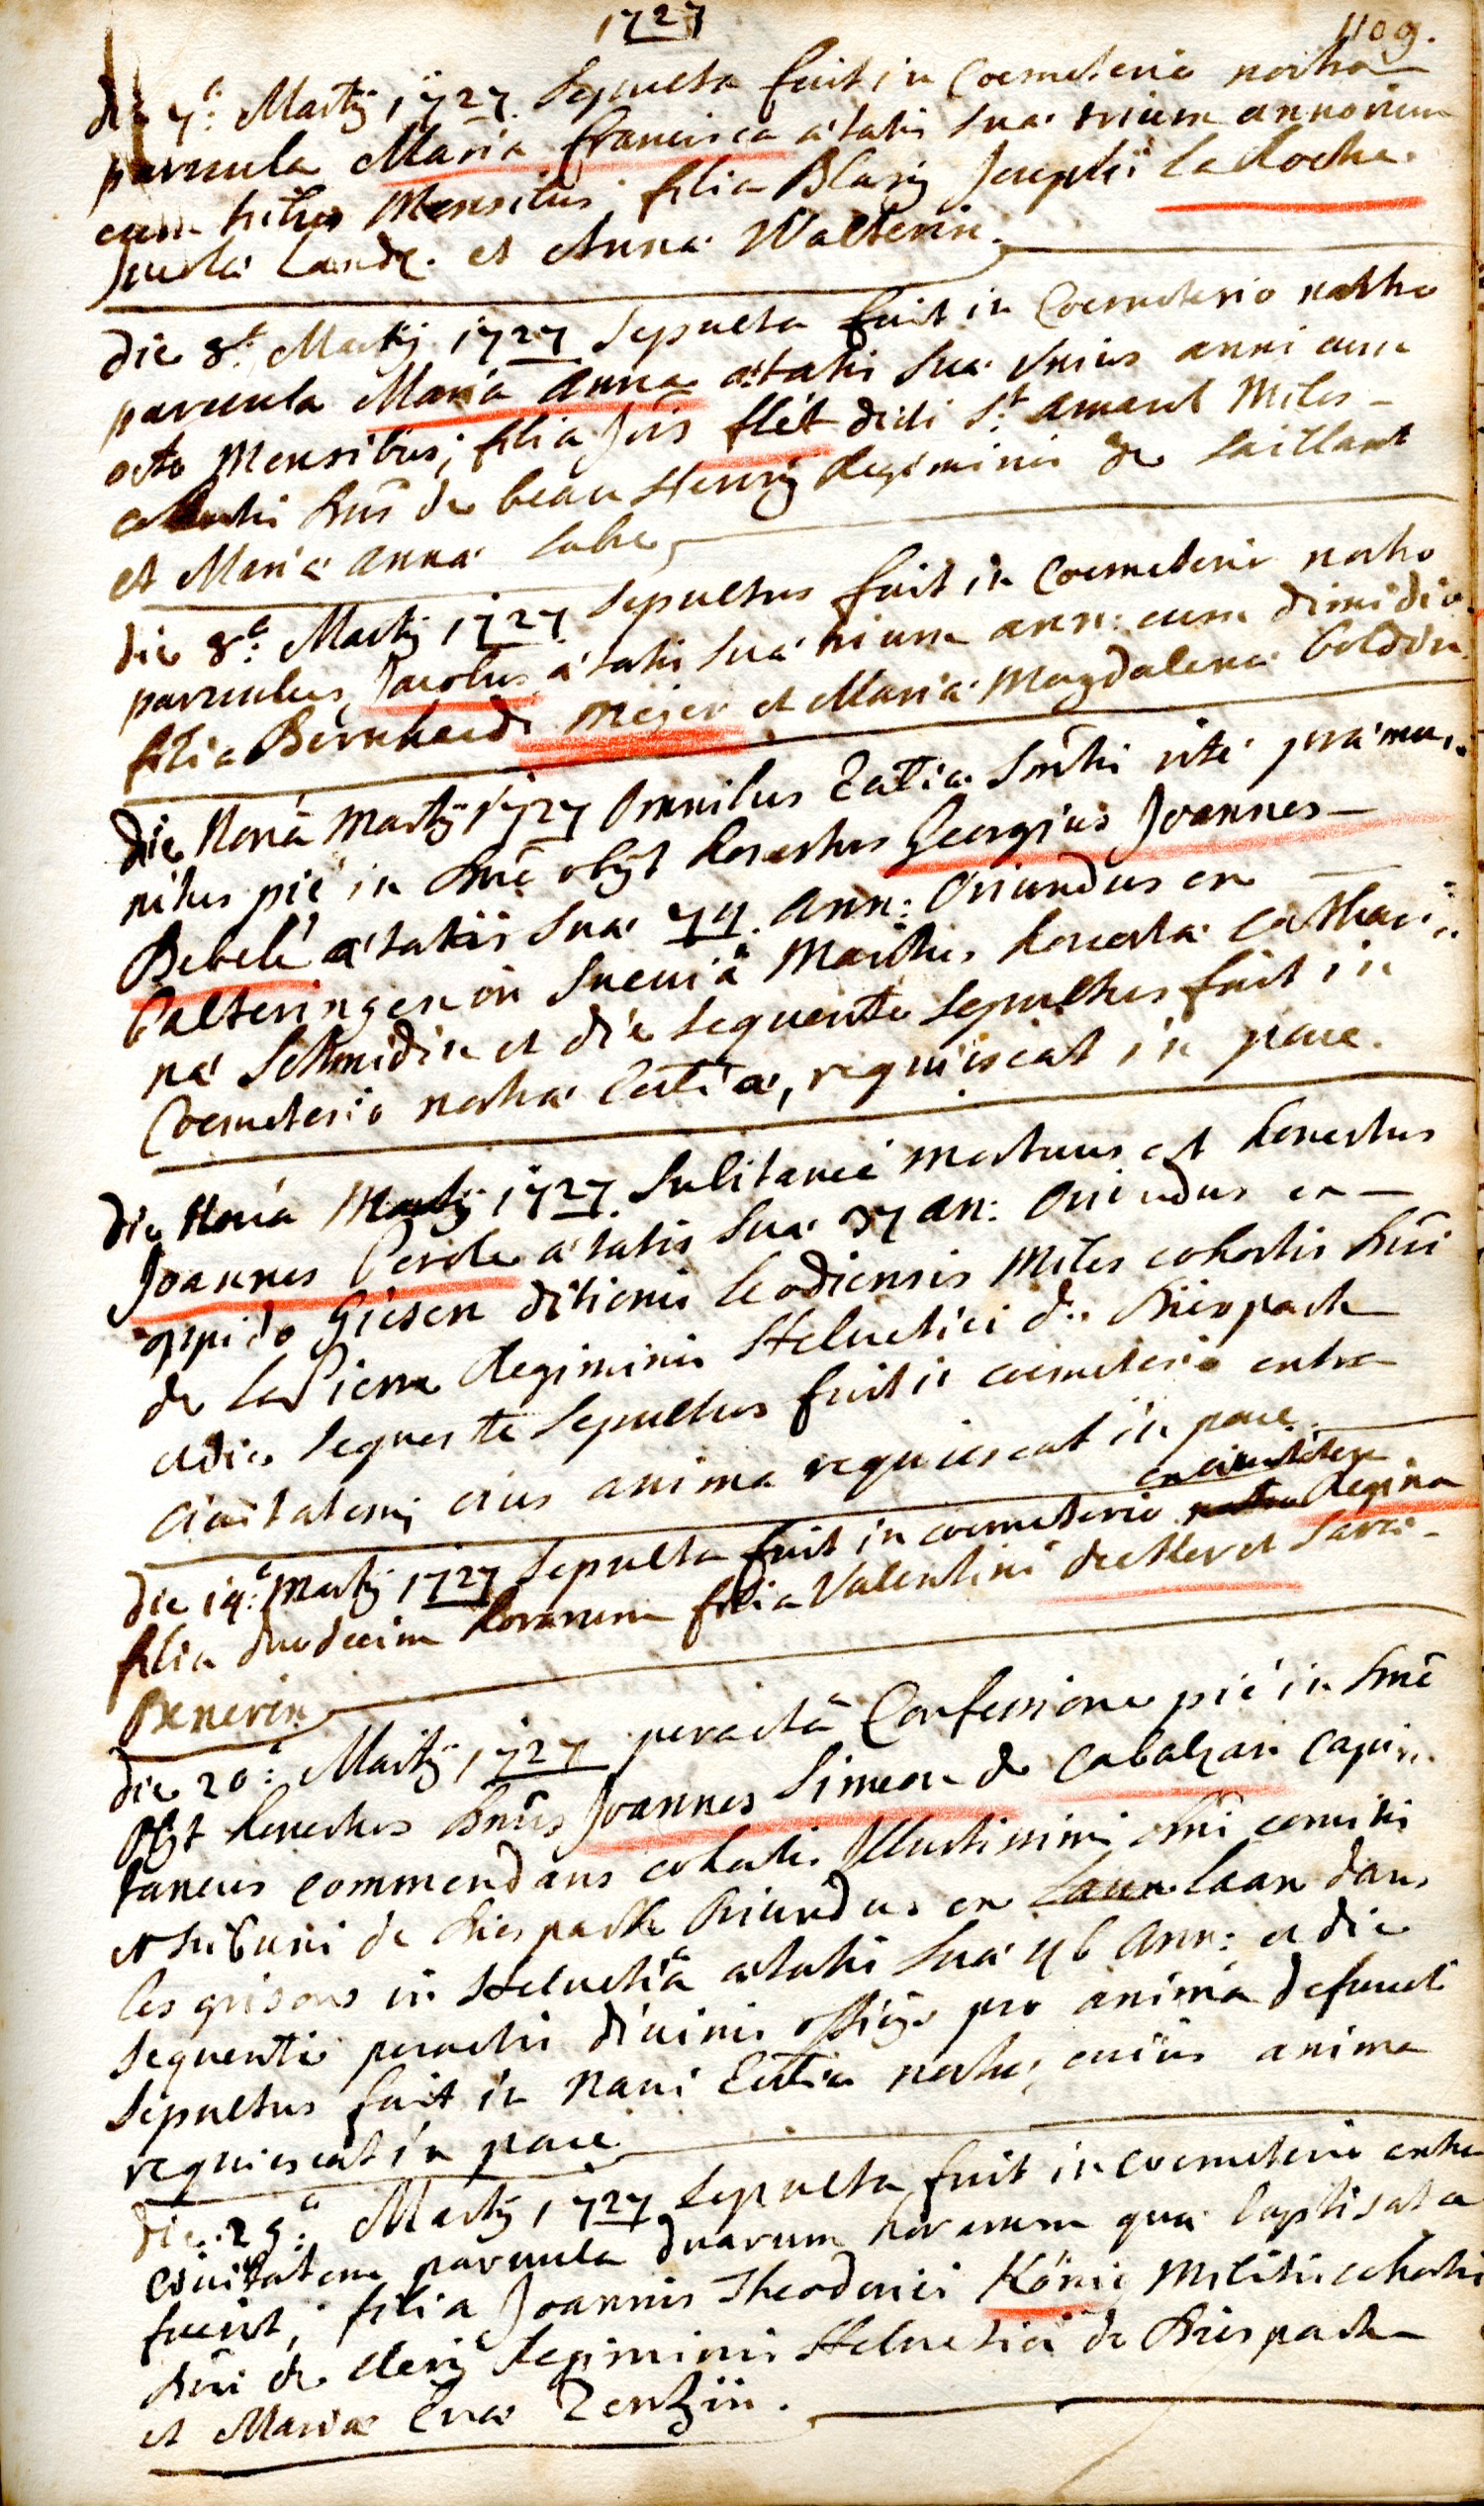 1727
1109.
die 7a: Martij 1727. Sepulta fuit in Coemeterio nostro
parvula Maria francisca aetatis suae trium annorum
cum tribus Mensibus filia Blasij Josephi La Roche
Incolae Land: et Annae Walterin.
die 8a. Martij 1727 Sepulta fuit in Coemeterio nostro
parvula Maria Anna aetatis suae unius anni cum
octo Mensibus; filia Jois flét dicti St. amant Miles
cohortis Dni de beau Henry Regiminis de Saillant
et Mariae Annae Labre
die 8a: Martij 1727 Sepultus fuit in Coemeterio nostro
parvulus Jacobus aetatis suae trium ann: cum dimidio
filia Bernhardi Meÿer et Mariae Magdalenae Coldin
die Nona Martij 1727 Omnibus Eccliae Smtis rite praemu-
nitus pie in Dno obijt honestus Georgius Joannes
Bebelé aetatis suae 74. Ann: Oriundus ex
Balteringen in Suevia Maritus honestae Cathari-
nae Schmidin et die sequente sepultus fuit in
Coemeterio nostrae Eccliae, requiescat in pace.
die Nona Martij 1727. Subitanee mortuus est honestus
Joannes Perole aetatis suae 37 an: Oriundus ex
oppido Giesen ditionis Leodiensis Miles cohortis Dni
de La Pierre Regiminis Helvetici de Diespach
et die sequente sepultus fuit in coemeterio extra
Civitatem, cuius anima requiescat in pace.
die 14a: Martij 1727 Sepulta fuit in coemeterio nostro ex civitatem Regina
filia duodecim horarum filia Valentini Deckler et Sara
Benerin
die 20a: Martij 1727 peracta Confessione pie in Dno
Obijt honestus Dnus Joannes Simeon de Cabalzar Capi-
taneus commendans cohortis Illustrissimi Dni comitis
et tribuni de Diespach Oriundus ex Laun Laax dans
les grisons in Helvetia aetatis suae 46 Ann: et die
sequenti peractis divinis officijs pro anima defuncti
sepultus fuit in Navi Eccliae nostrae, cuius anima
requiescat in pace
die 29a: Martij 1727 Sepulta fuit in coemeterio extra
Civitatem parvula duarum horarum quae baptisata
fuerit, filia Joannis Theodorici König Militis cohortis
Dni de Clerij Regiminis Helvetici de Diespach
et Mariae Evae Zentzin.